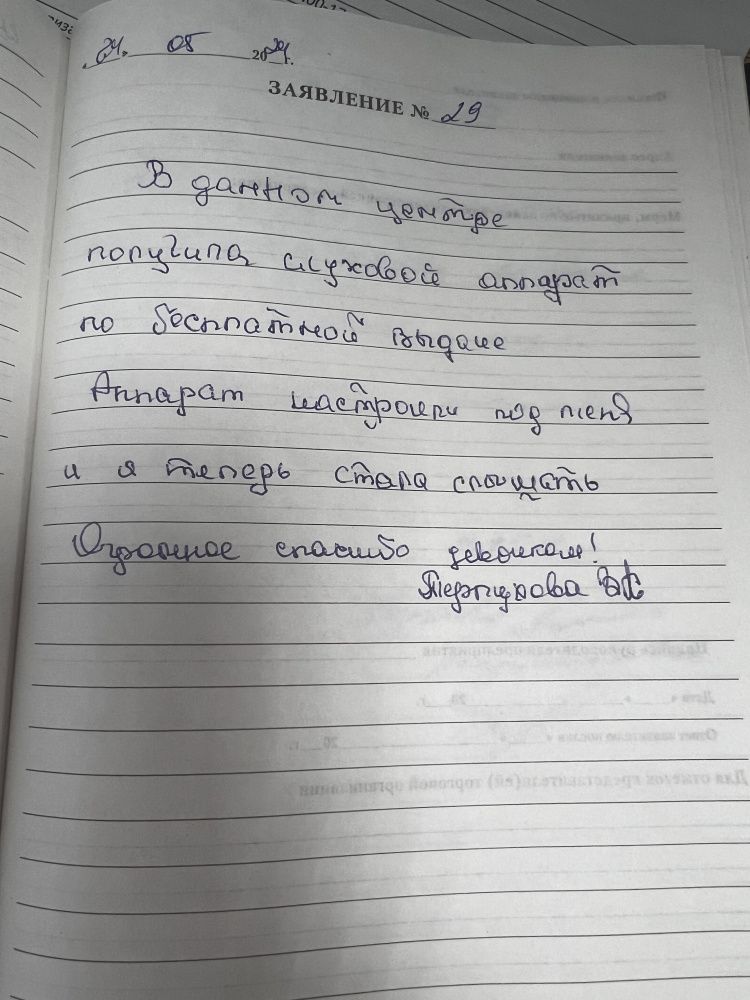 24. 05 2024.
ЗАЯВЛЕНИЕ № 29
В данном центре
получила слуховой аппарат
по бесплатной выдаче
Аппарат настроили под меня
и я теперь стала слышать
Огромное спасибо девочкам!